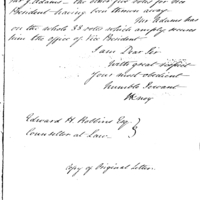 J. Adams — the other five votes for Vice
President having been thrown away
Mr Adams has
on the whole 38 votes which amply secures
him the office of Vice President
I am Dear Sir
with great respect
Your most obedient
humble Servant
HKnox
Edward H. Robbins Esq.
Counsellor at Law
Copy of Original Letter.